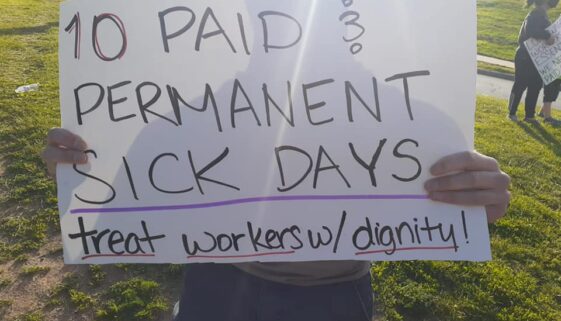 10 PAID &
PERMANENT
SICK DAYS
treat workers w/ dignity!